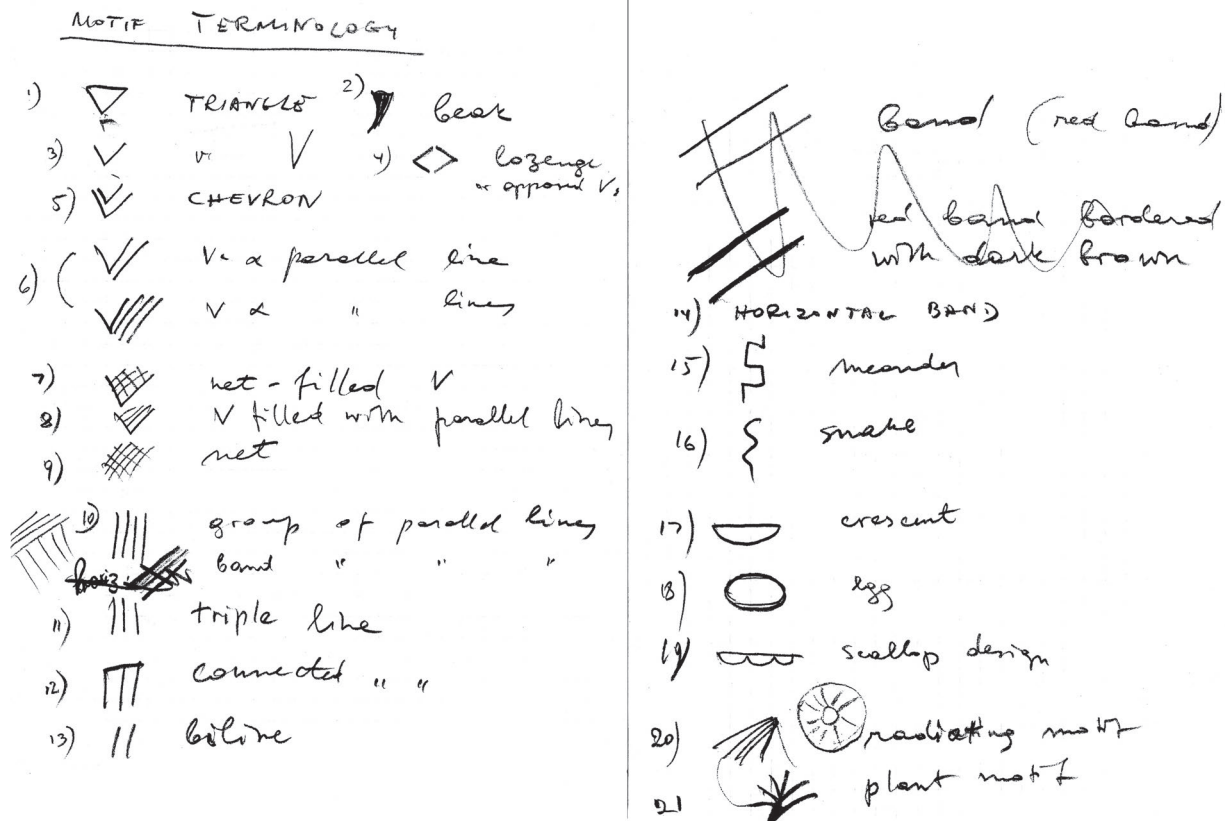 MOTIF TERMINOLOGY
1) TRIANGLE 2) beak
3) V 4) lozenge
or opposed Vs
5) CHEVRON
6) V & parallel line
V & " lines
7) net-filled V
8) V filled with parallel lines
9) net
10) group of parallel lines
band " " "
horiz.
11) triple line
12) connected " "
13) biline
band (red band)
red band bordered
with dark brown
14) HORIZONTAL BAND
15) meander
16) snake
17) crescent
18) egg
19) scallop design
20) radiating motif
21 plant motif